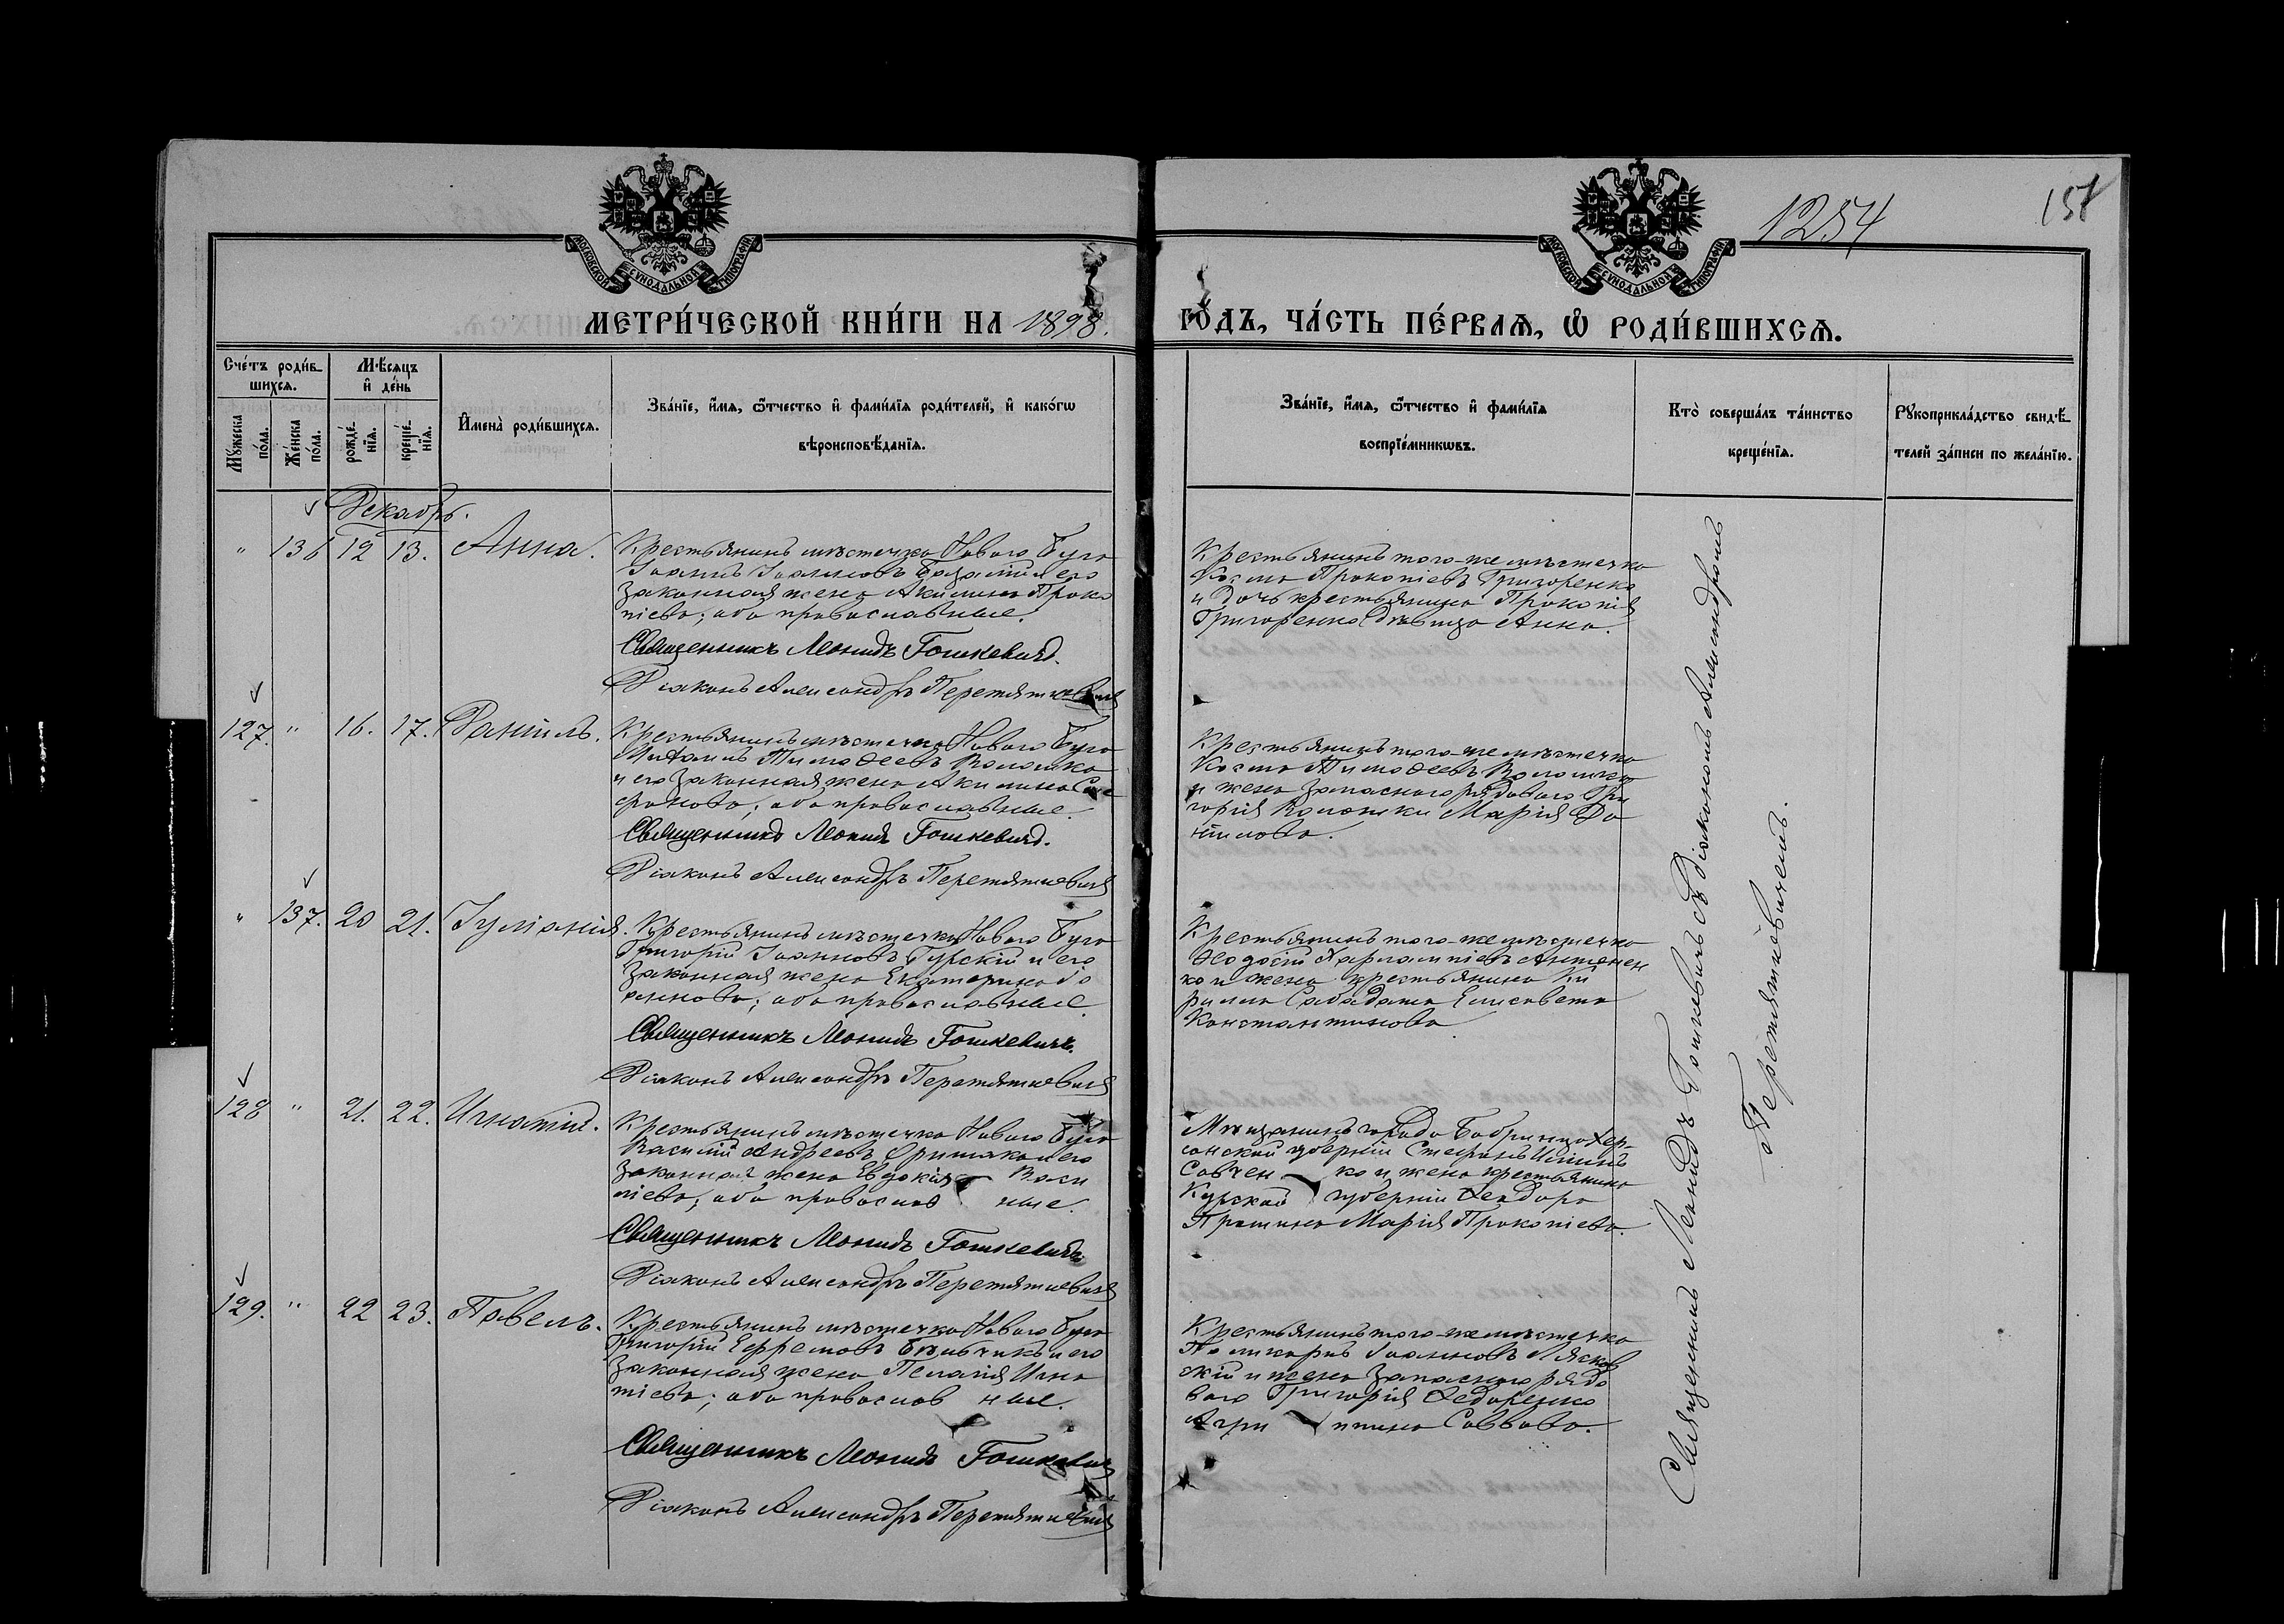 1254
151
МОСКОВСКОЙ СѴНОДАЛЬНОЙ ТИПОГРАФІИ
МОСКОВСКОЙ СѴНОДАЛЬНОЙ ТИПОГРАФІИ
МЕТРИ́ЧЕСКОЙ КНИ́ГИ НА 1898.
ГО́ДЪ, ЧА́СТЬ ПЕ́РВАѦ, Ѡ РОДИ́ВШИХСѦ.
Сче́тъ роди́в-
шихсѧ.
Мꙋ́жеска по́ла.
Же́нска по́ла.
Мѣ́сѧцъ
и҆ де́нь
рожде́-
нїѧ.
креще́-
нїѧ.
И҆мена̀ роди́вшихсѧ.
Зва́нїе, и҆́мѧ, ѻ҆́тчество и҆ фами́лїѧ роди́телей, и҆ како́гѡ
вѣроисповѣ́данїѧ.
Зва́нїе, и҆́мѧ, ѻ҆́тчество и҆ фами́лїѧ
воспрїе́мникѡвъ.
Кто̀ соверша́лъ та́инство
креще́нїѧ.
Рꙋкоприкла́дство свидѣ́-
телей за́писи по жела́нїю.
Декабрь.
" 136 12 13. Анна.
Крестьянинъ мѣстечка Новаго Буга
Іоаннъ Іоанновъ и его
законная жена Акилина Проко
піева; оба православные.
Священникъ Леонидъ Гошкевичъ.
Діаконъ Александръ Перетятковичъ
Крестьянинъ того-же мѣстечка
Косма Прокопіевъ Григоренко
и дочь крестьянина Прокопія
Григоренко дѣвица Анна.
127. " 16. 17. Даніилъ.
Крестьянинъ мѣстечка Новаго Буга
Тимоѳеевъ Волошко
и его законная жена Акилина Со
фонова; оба православные.
Священникъ Леонидъ Гошкевичъ.
Діаконъ Александръ Перетятковичъ
Крестьянинъ того-же мѣстечка
Косма Тимоѳеевъ Волошко
и жена запаснаго рядового Гри
горія Волошки Марія Да
ніилова.
" 137. 20 21. Іуліанія.
Крестьянинъ мѣстечка Новаго Буга
Григорій Іоанновъ Гурскій и его
законная жена Екатерина Іо
аннова; оба православные.
Священникъ Леонидъ Гошкевичъ.
Діаконъ Александръ Перетятковичъ
Крестьянинъ того-же мѣстечка
Ѳеодосій Харлампіевъ Антонен
ко и жена крестьянина Ки
рилла Сабадаша Елисавета
Константинова
128 " 21. 22. Игнатій.
Крестьянинъ мѣстечка Новаго Буга
Василій Андреевъ и его
законная жена Евдокія Васи
ліева; оба православ ные.
Священникъ Леонидъ Гошкевичъ.
Діаконъ Александръ Перетятковичъ
Мѣщанинъ города Бобринца Хер-
сонской губерніи Стефанъ
Савчен ко и жена крестьянина
Курской губерніи Ѳеодора
Марія Прокопіева.
129. " 22 23. Павелъ.
Крестьянинъ мѣстечка Новаго Буга
Григорій Ефремовъ и его
законная жена Пелагія Игна
тіева; оба православ ные.
Священникъ Леонидъ Гошкевичъ
Діаконъ Александръ Перетятковичъ
Крестьянинъ того-же мѣстечка
Поликарпъ Іоанновъ Лясков
скій и жена запаснаго рядо
ваго Григорія Ѳедоренко
Агри ппина Саввова.
Священникъ Леонидъ Гошкевичъ съ діакономъ Александромъ
Перетятковичемъ.